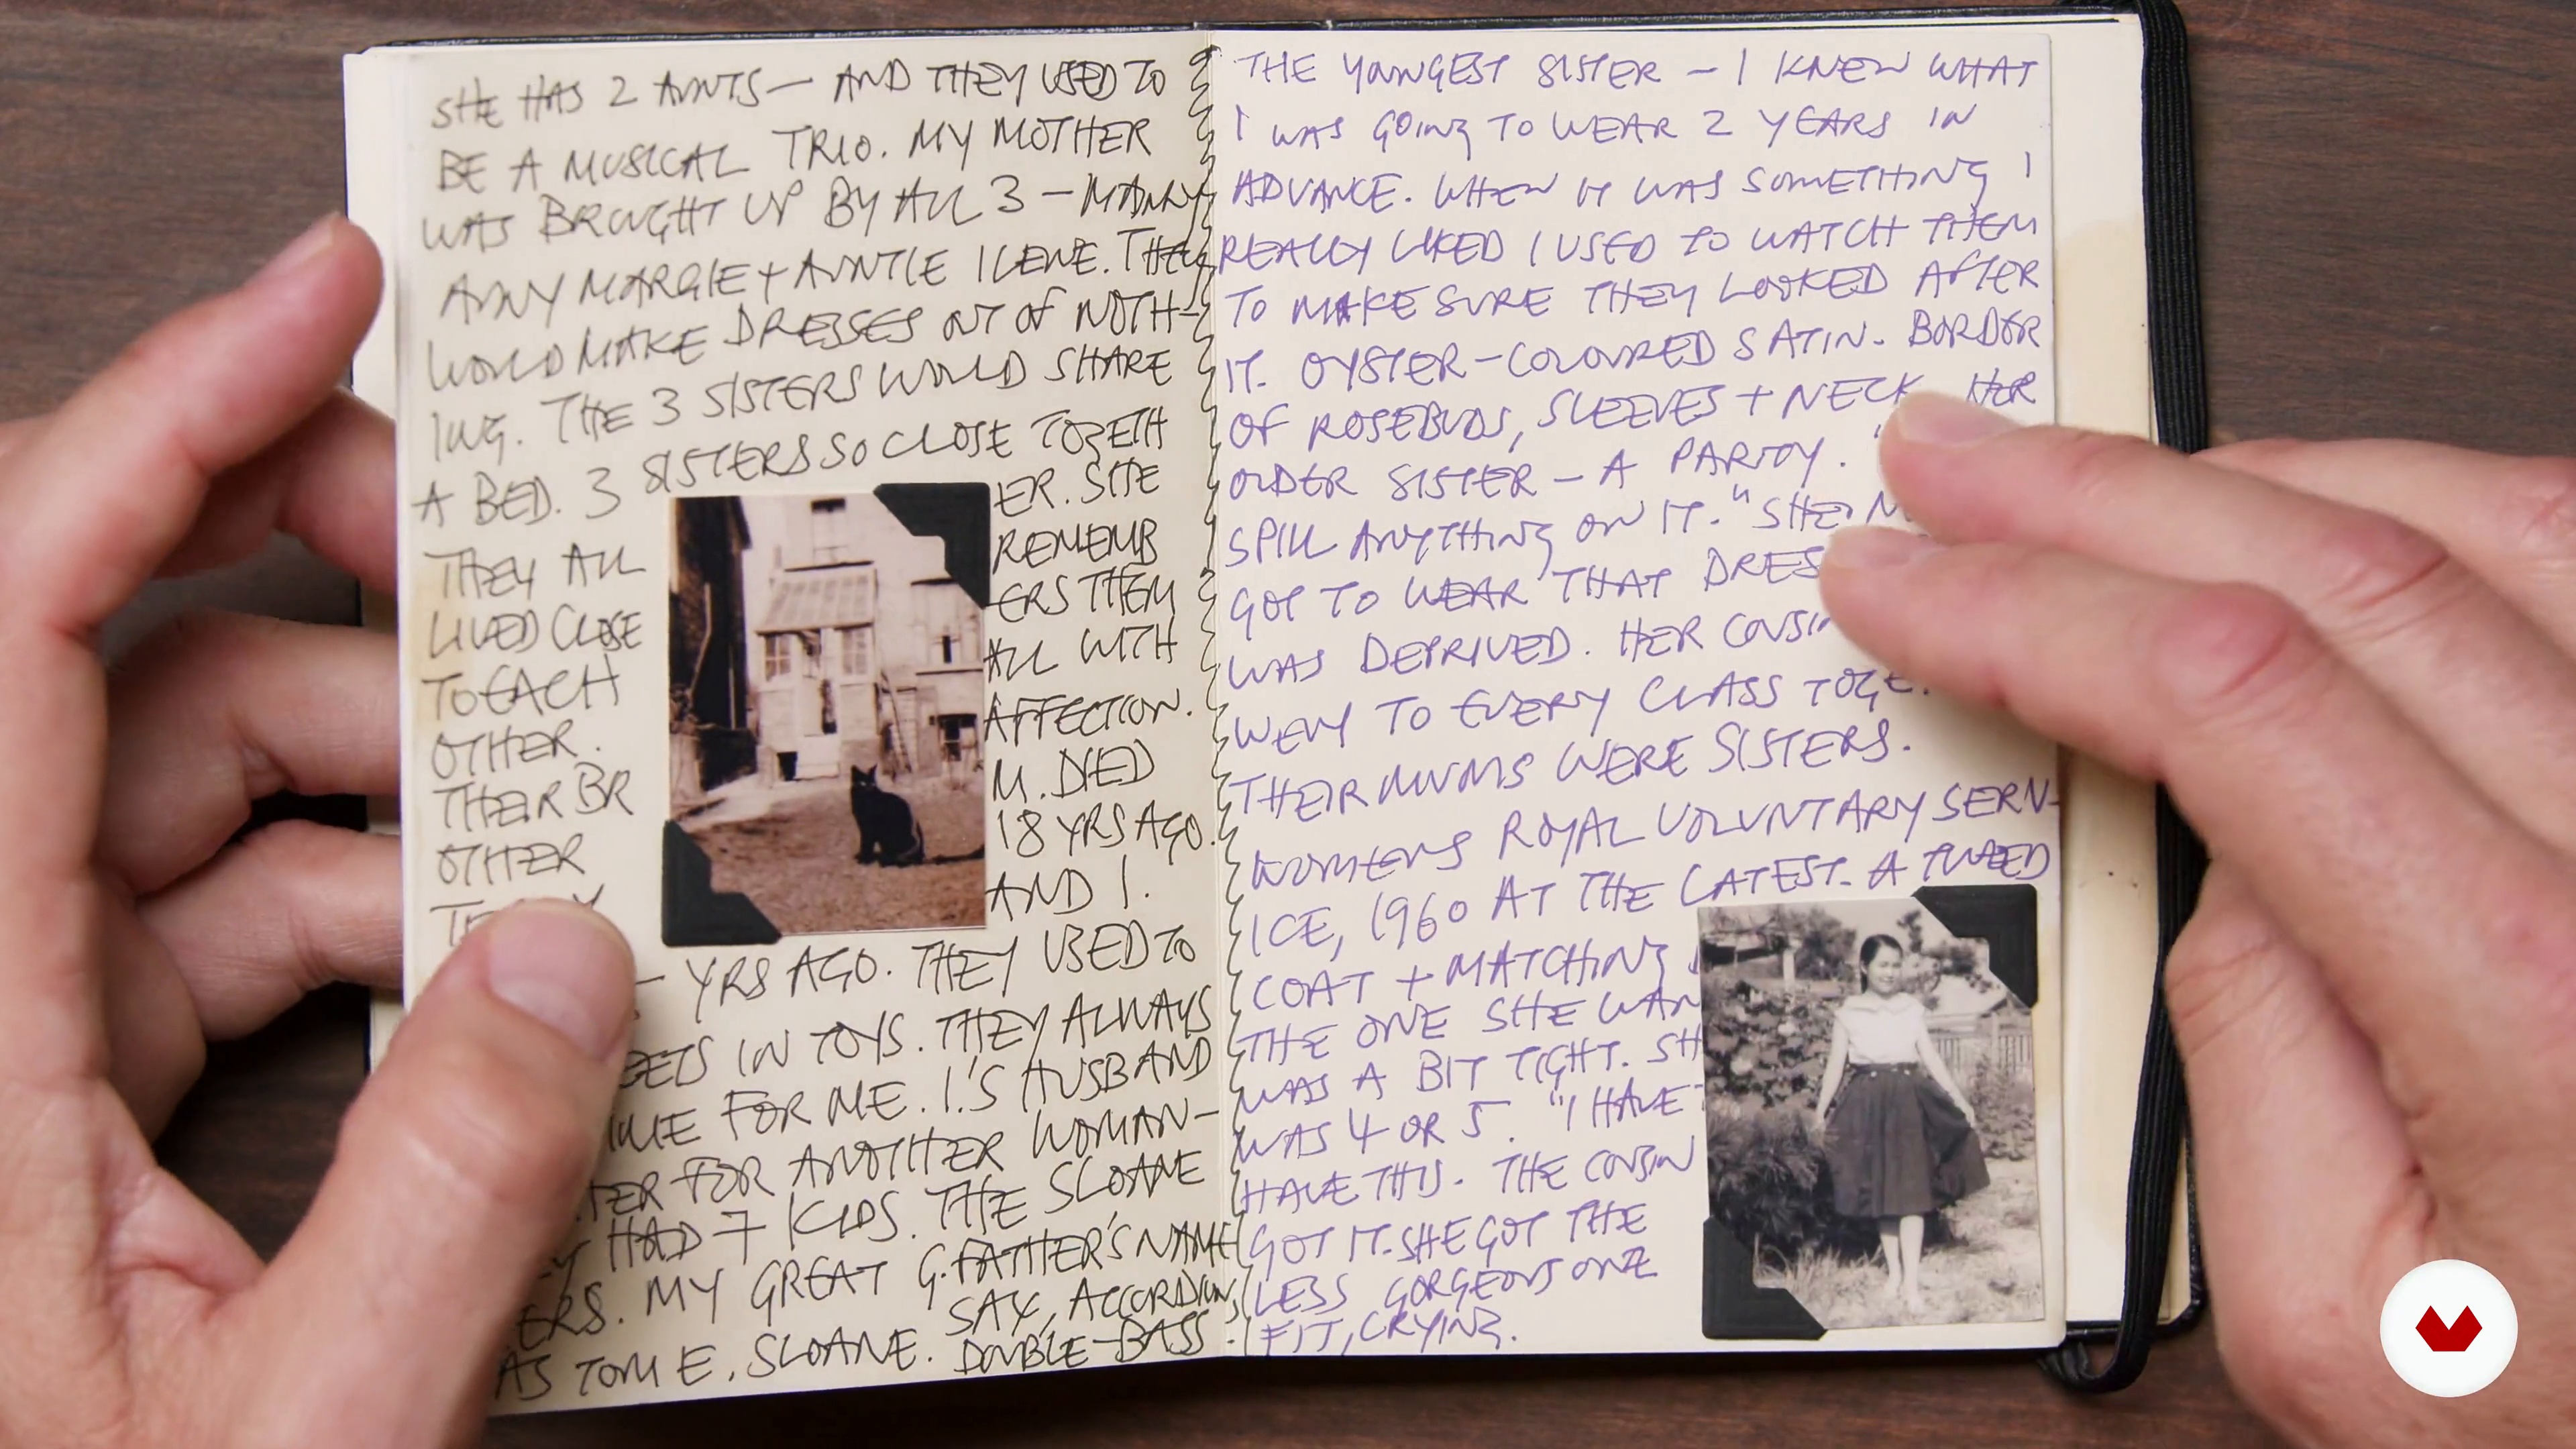 SHE HAS 2 AUNTS — AND THEY USED TO
BE A MUSICAL TRIO. MY MOTHER
WAS BROUGHT UP BY ALL 3 —
MARGIE + AUNTIE ILENE. THEY
WOULD MAKE DRESSES OUT OF NOTH-
ING. THE 3 SISTERS WOULD SHARE
A BED. 3 SISTERS SO CLOSE TOGETH
ER. SHE
REMEMB
ERS THEM
ALL WITH
AFFECTION.
M. DIED
18 YRS AGO.
AND I.
THEY ALL
LIVED CLOSE
TO EACH
OTHER.
THEIR BR
OTHER
— YRS AGO. THEY USED TO
IN TOYS. THEY ALWAYS
FOR ME. I.'S HUSBAND
FOR ANOTHER WOMAN —
HAD 7 KIDS. THE SLOANE
ERS. MY GREAT G.FATHER'S NAME
AS TOM E. SLOANE. SAX, ACCORDION,
DOUBLE-BASS.
THE YOUNGEST SISTER — I KNEW WHAT
I WAS GOING TO WEAR 2 YEARS IN
ADVANCE. WHEN IT WAS SOMETHING I
REALLY LIKED I USED TO WATCH THEM
TO MAKE SURE THEY LOOKED AFTER
IT. OYSTER-COLOURED SATIN. BORDER
OF ROSEBUDS, SLEEVES + NECK HER
OLDER SISTER — A PARTY.
SPILL ANYTHING ON IT." SHE
GOT TO WEAR THAT
WAS DEPRIVED. HER
WENT TO EVERY CLASS
THEIR MUMS WERE SISTERS.
WOMENS ROYAL VOLUNTARY SERV-
ICE, 1960 AT THE LATEST. A TWEED
COAT + MATCHING
THE ONE SHE
WAS A BIT TIGHT.
WAS 4 OR 5. "I HAVE
HAVE THIS. THE COUSIN
GOT IT. SHE GOT THE
LESS GORGEOUS ONE
FIT, CRYING.